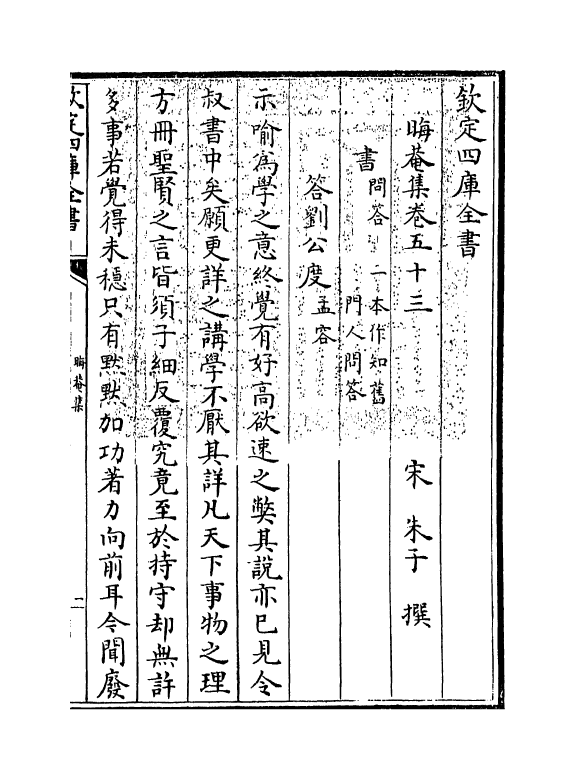 欽定四庫全書
晦菴集卷五十三
宋 朱子 撰
書 問答 一本作知舊門人問答
答劉公度 孟容
示喻為學之意終覺有好高欲速之弊其說亦已見令
叔書中矣願更詳之講學不厭其詳凡天下事物之理
方冊聖賢之言皆須子細反覆究竟至於持守却無許
多事若覺得未穩只有黙黙加功著力向前耳今聞廢
欽定四庫全書
晦菴集